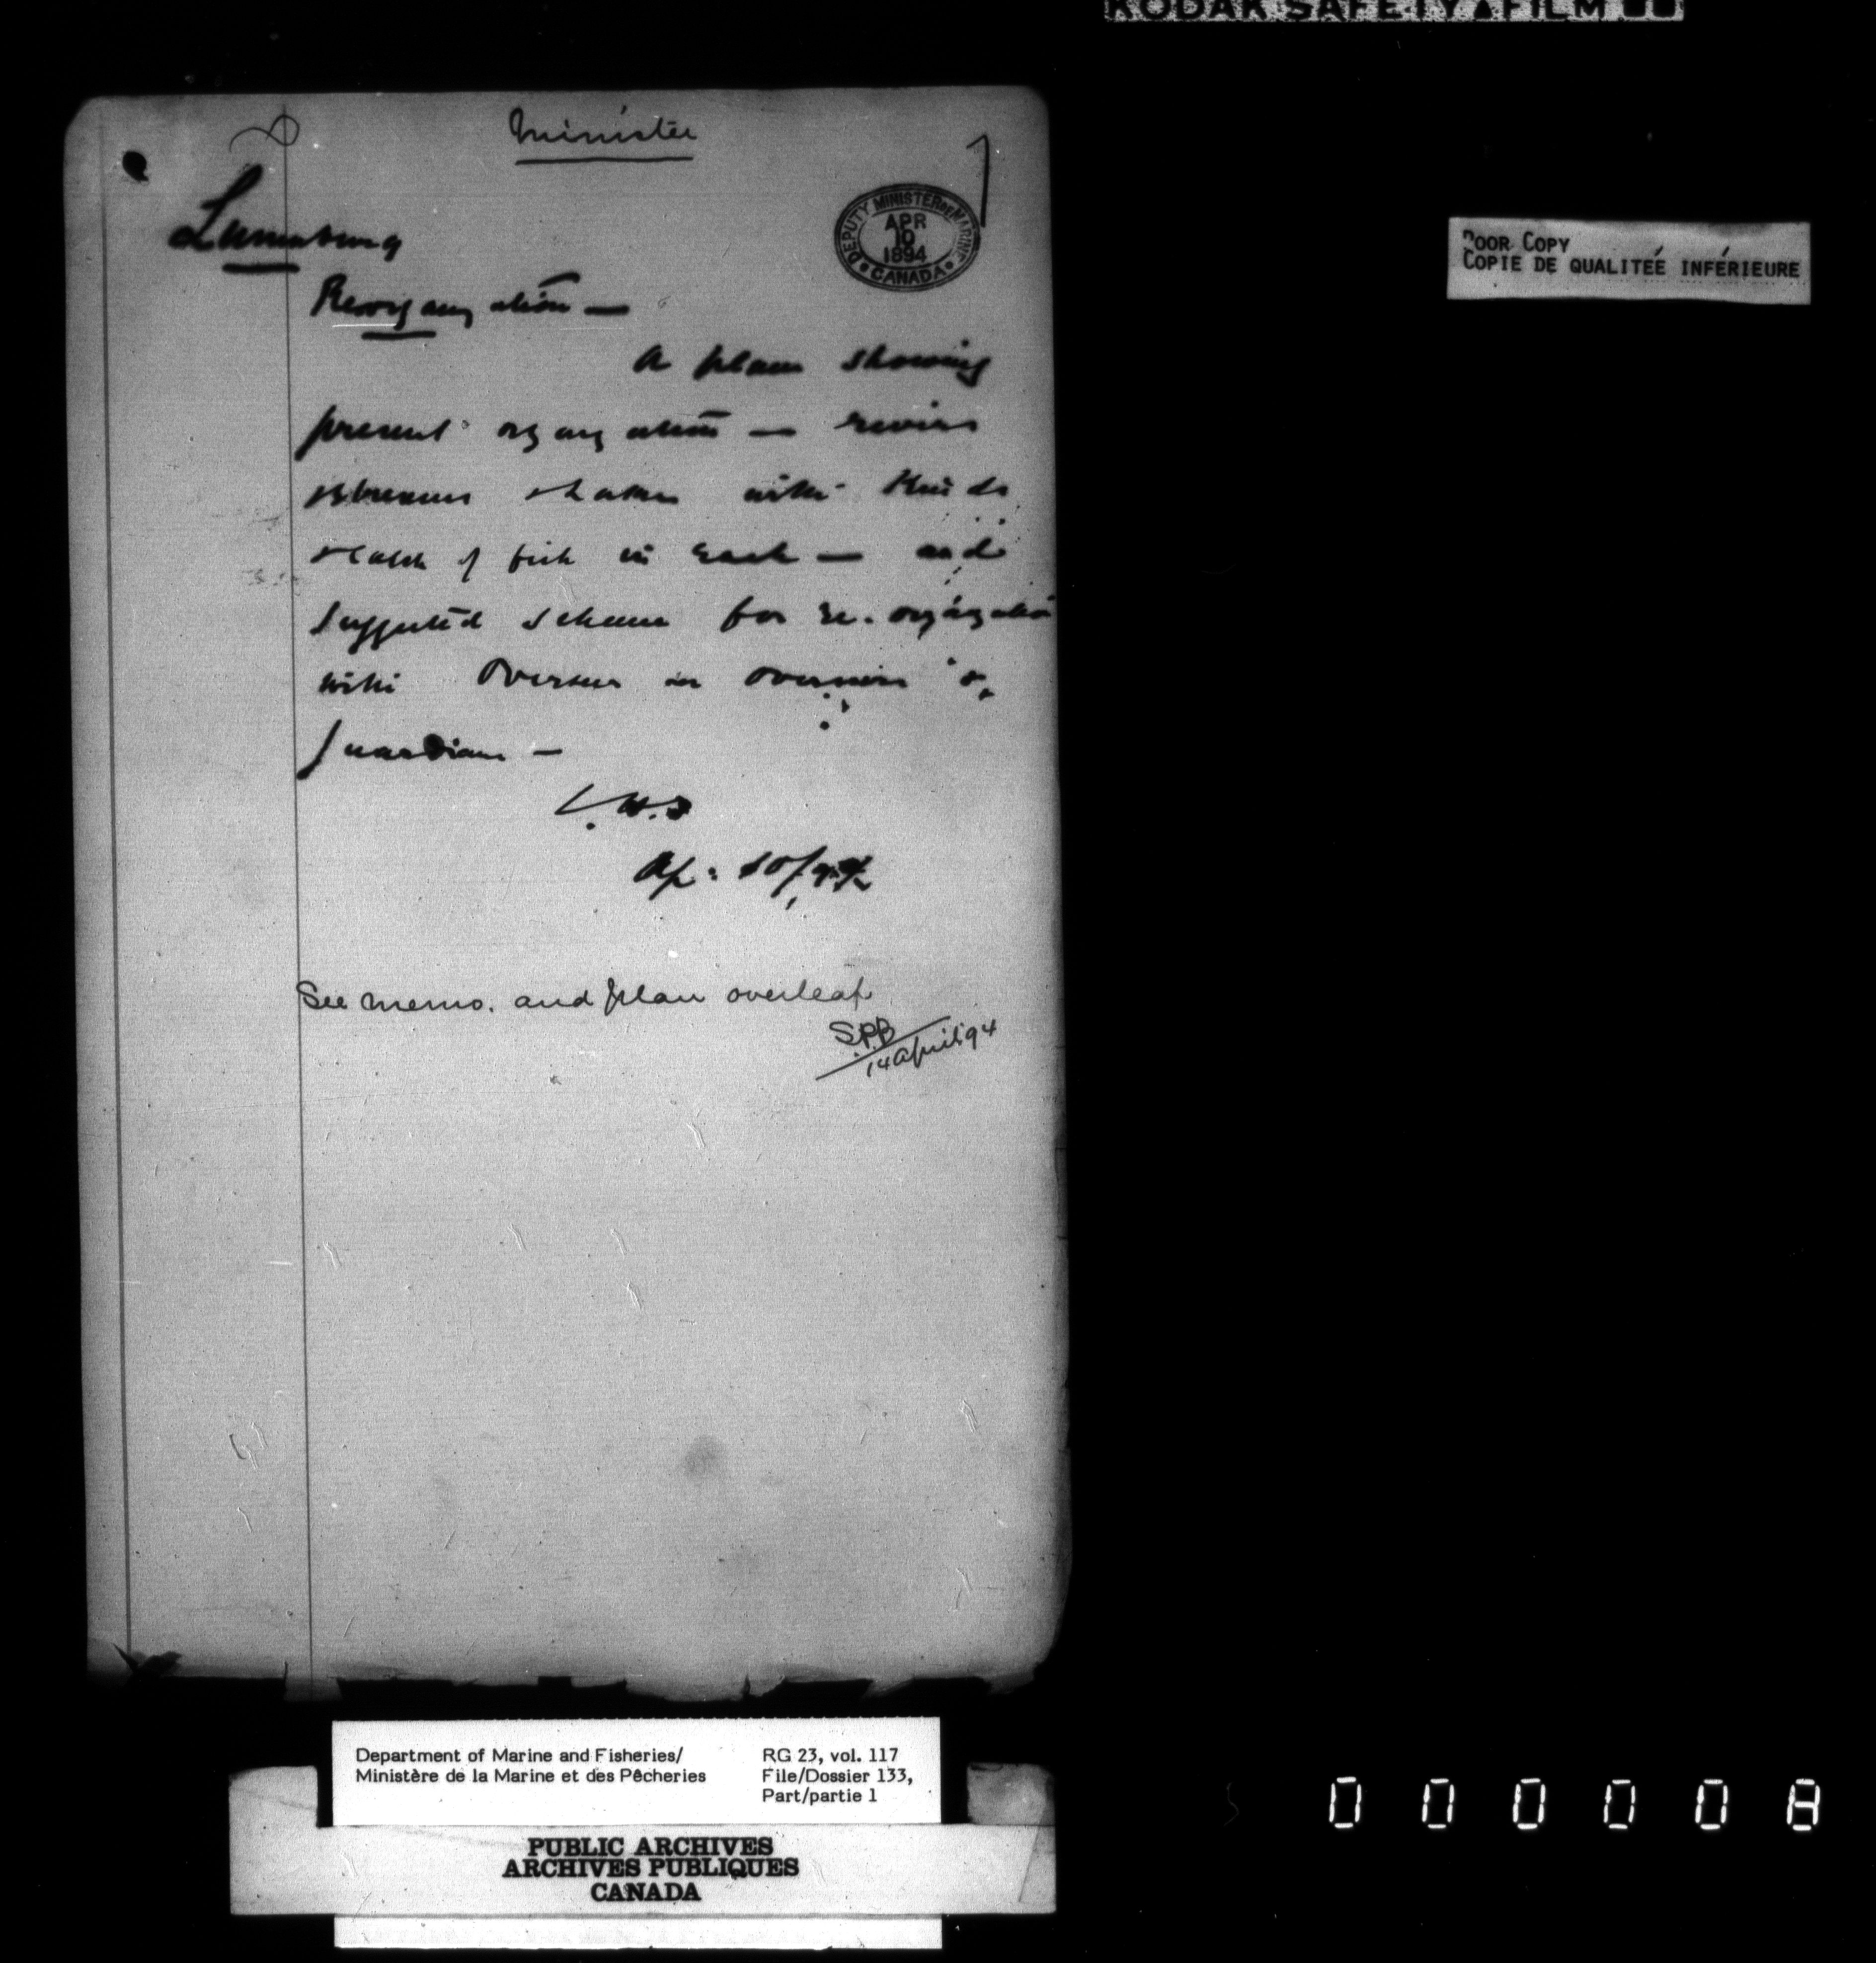 KODAK SAFETY FILM
Minister
DEPUTY MINISTER OF MARINE
APR
10
1894
CANADA
Lunenburg
Reorganization —
A plan showing
present organization — rivers
streams with kinds
catch of fish in each — and
suggested scheme for re-organization
with Overseer or overseers &
guardians —
C.H.T
Ap: 10/94
See memo. and plan overleaf
S.P.B
14 April '94
POOR COPY
COPIE DE QUALITEÉ INFÉRIEURE
Department of Marine and Fisheries/
Ministère de la Marine et des Pêcheries
RG 23, vol. 117
File/Dossier 133,
Part/partie 1
PUBLIC ARCHIVES
ARCHIVES PUBLIQUES
CANADA
000008